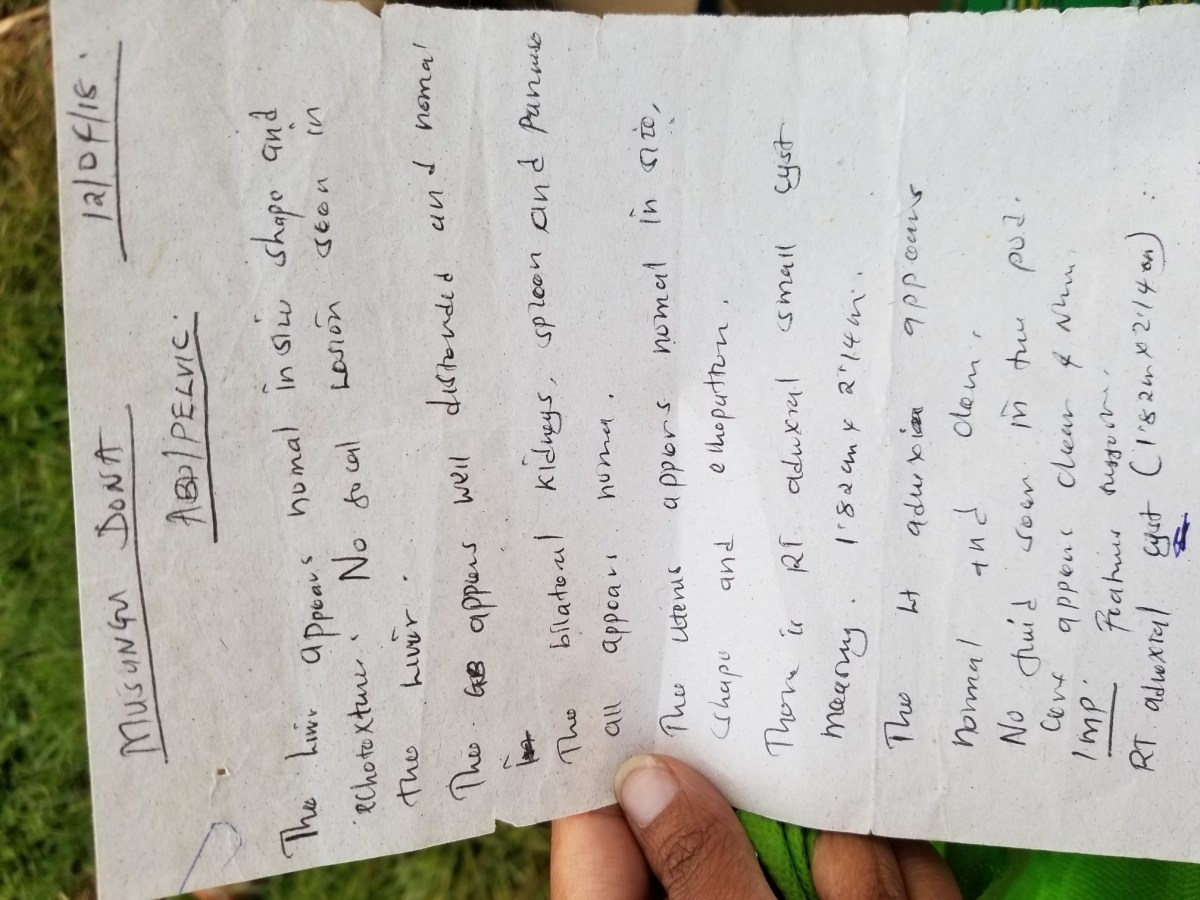 MUSUNGU DONA 12/04/18.
ABD/PELVIC.
The liver appears normal in size shape and
echotexture. No focal Lesion seen in
the Liver.
The GB appears well distended and nomal
The bilateral kidneys, spleen and panureas
all appears noma.
The Uterus appers nomal in size,
shape and echopattern.
There is RT adnexal small cyst
measuring. 1.82cm x 2.14cm.
The Lt adnexia appears
normal and clean.
No fluid seen in the pod.
appears clear &
Imp. Features suggestive
RT adnexal cyst (1.82cm x 2.14cm)